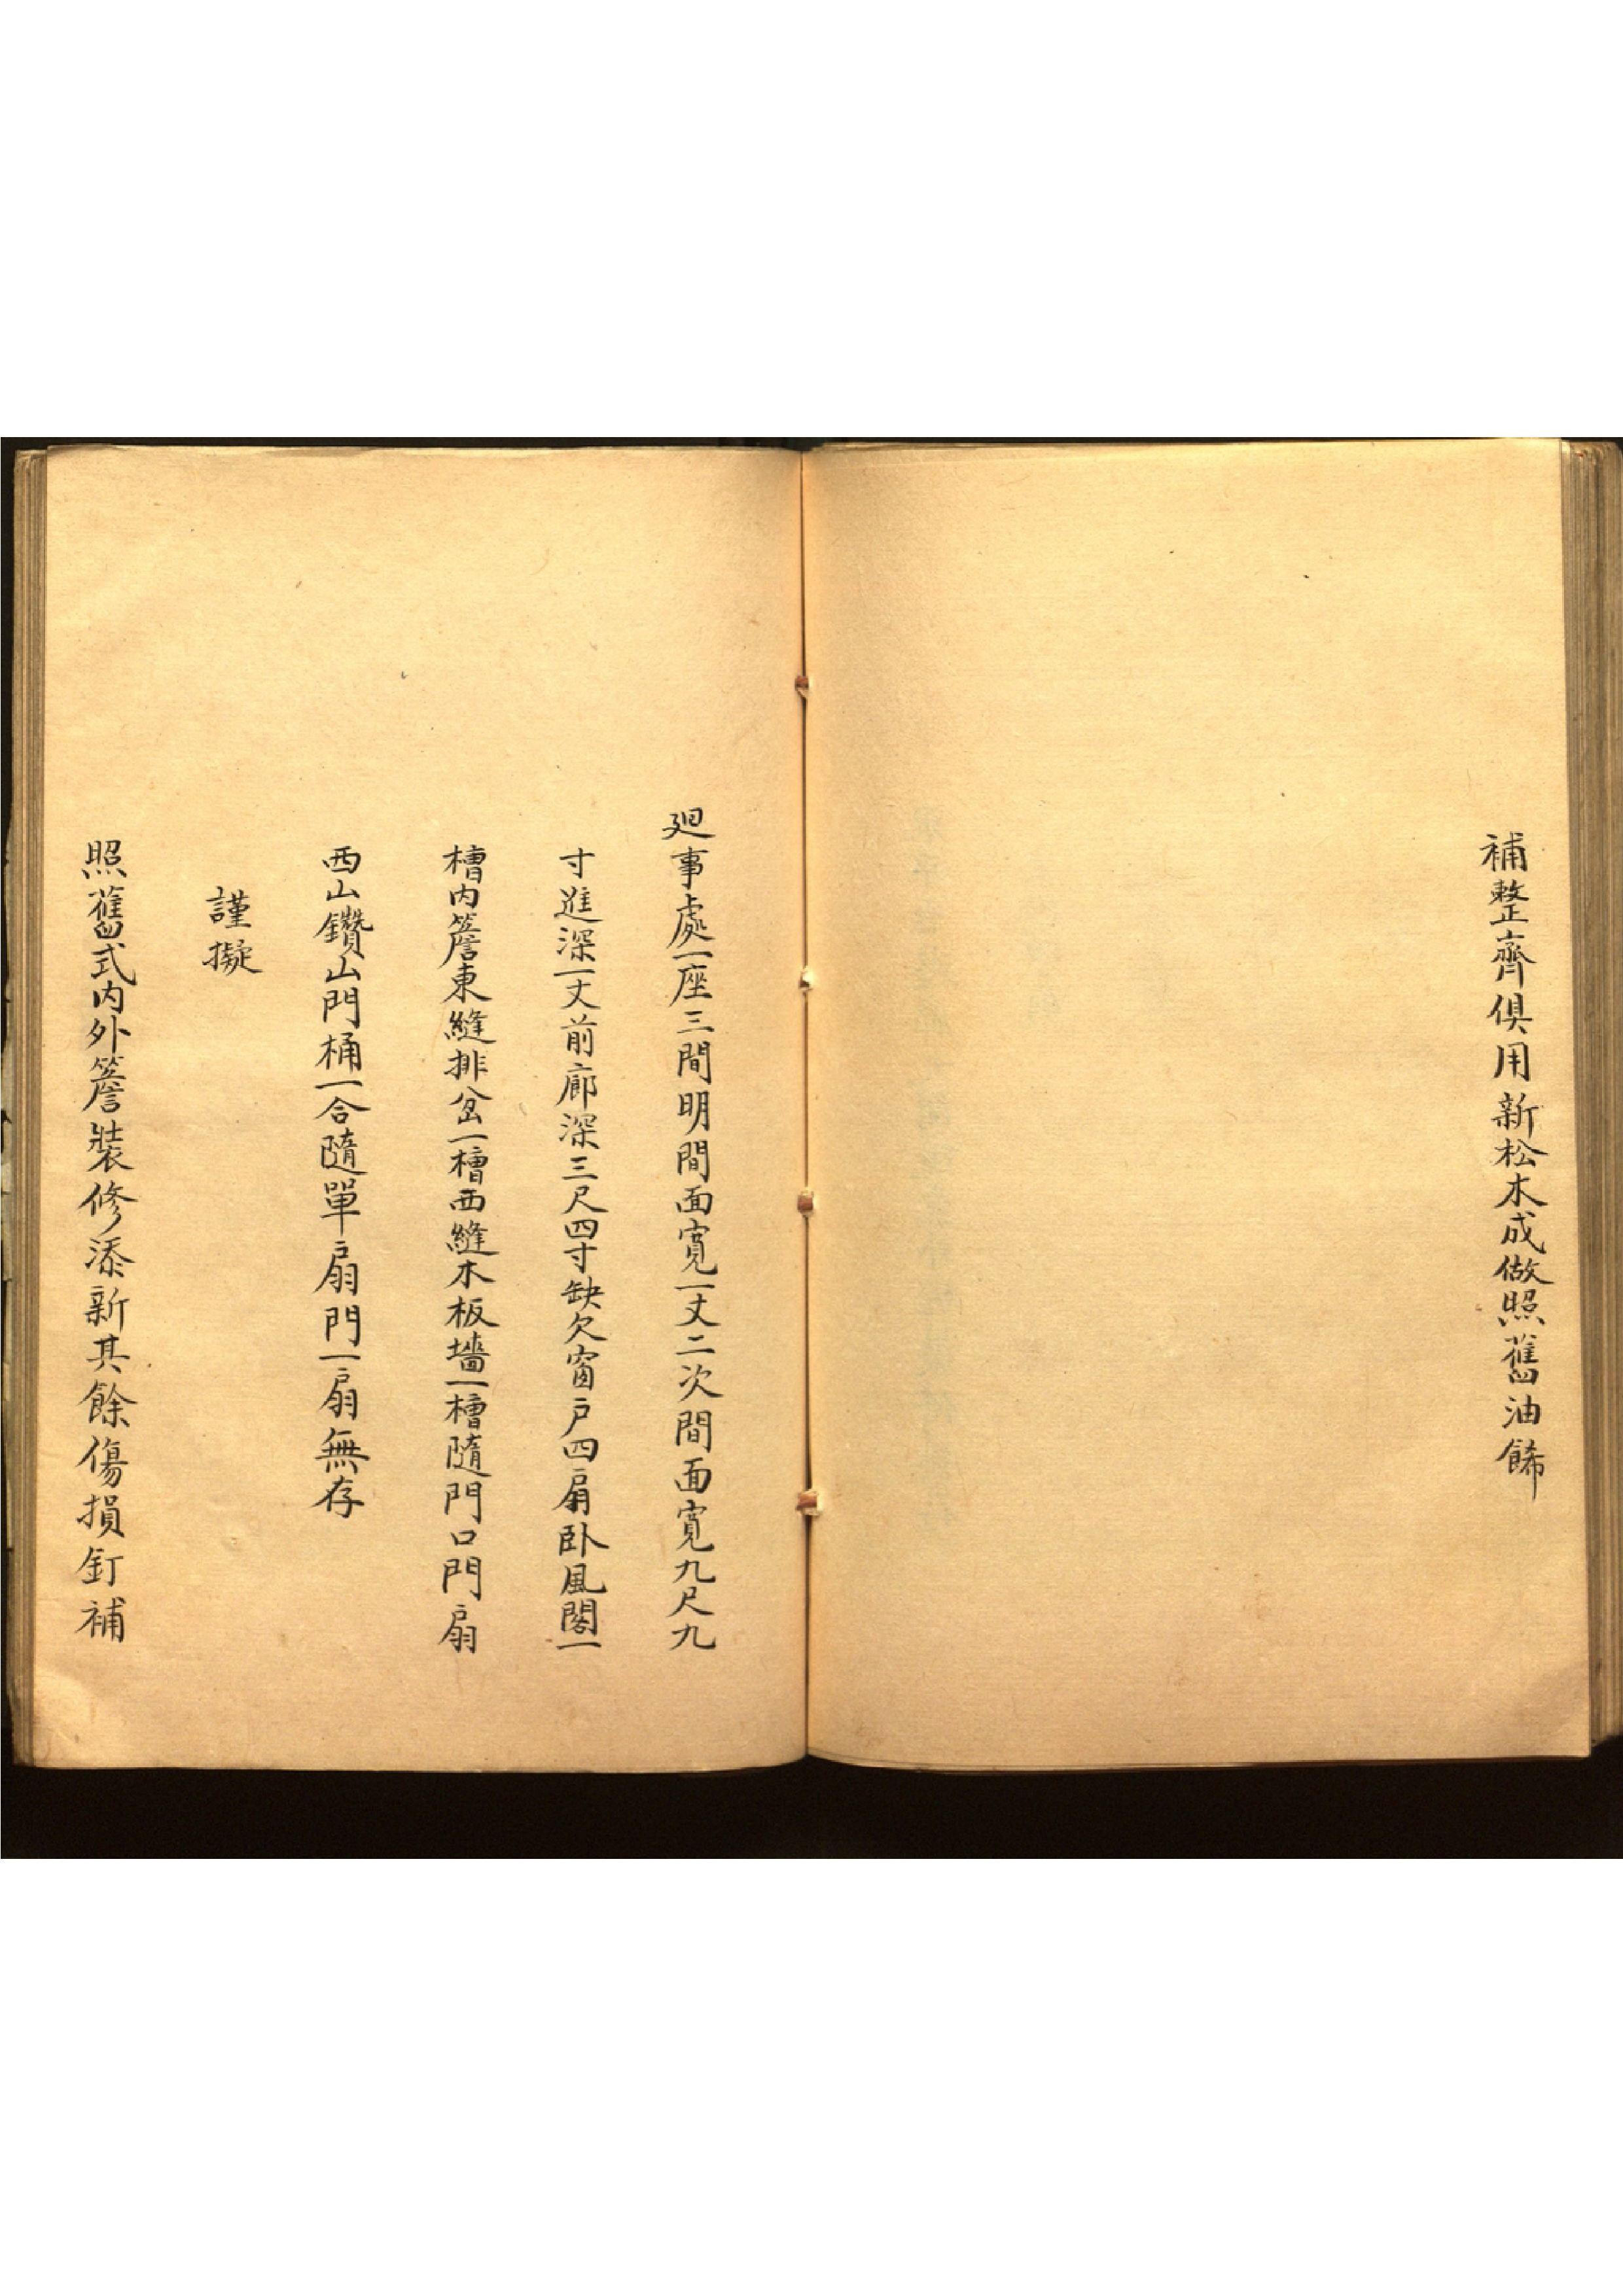 補整齊俱用新松木成做照舊油餙
廻事處一座三間明間面寬一丈二次間面寬九尺九
寸進深一丈前廊深三尺四寸缺欠窗戶四扇卧風閣一
槽內簷東縫排岔一槽西縫木板墻一槽隨門口門扇
西山鑽山門桶一合隨單扇門一扇無存
謹擬
照舊式內外簷裝修添新其餘傷損釘補